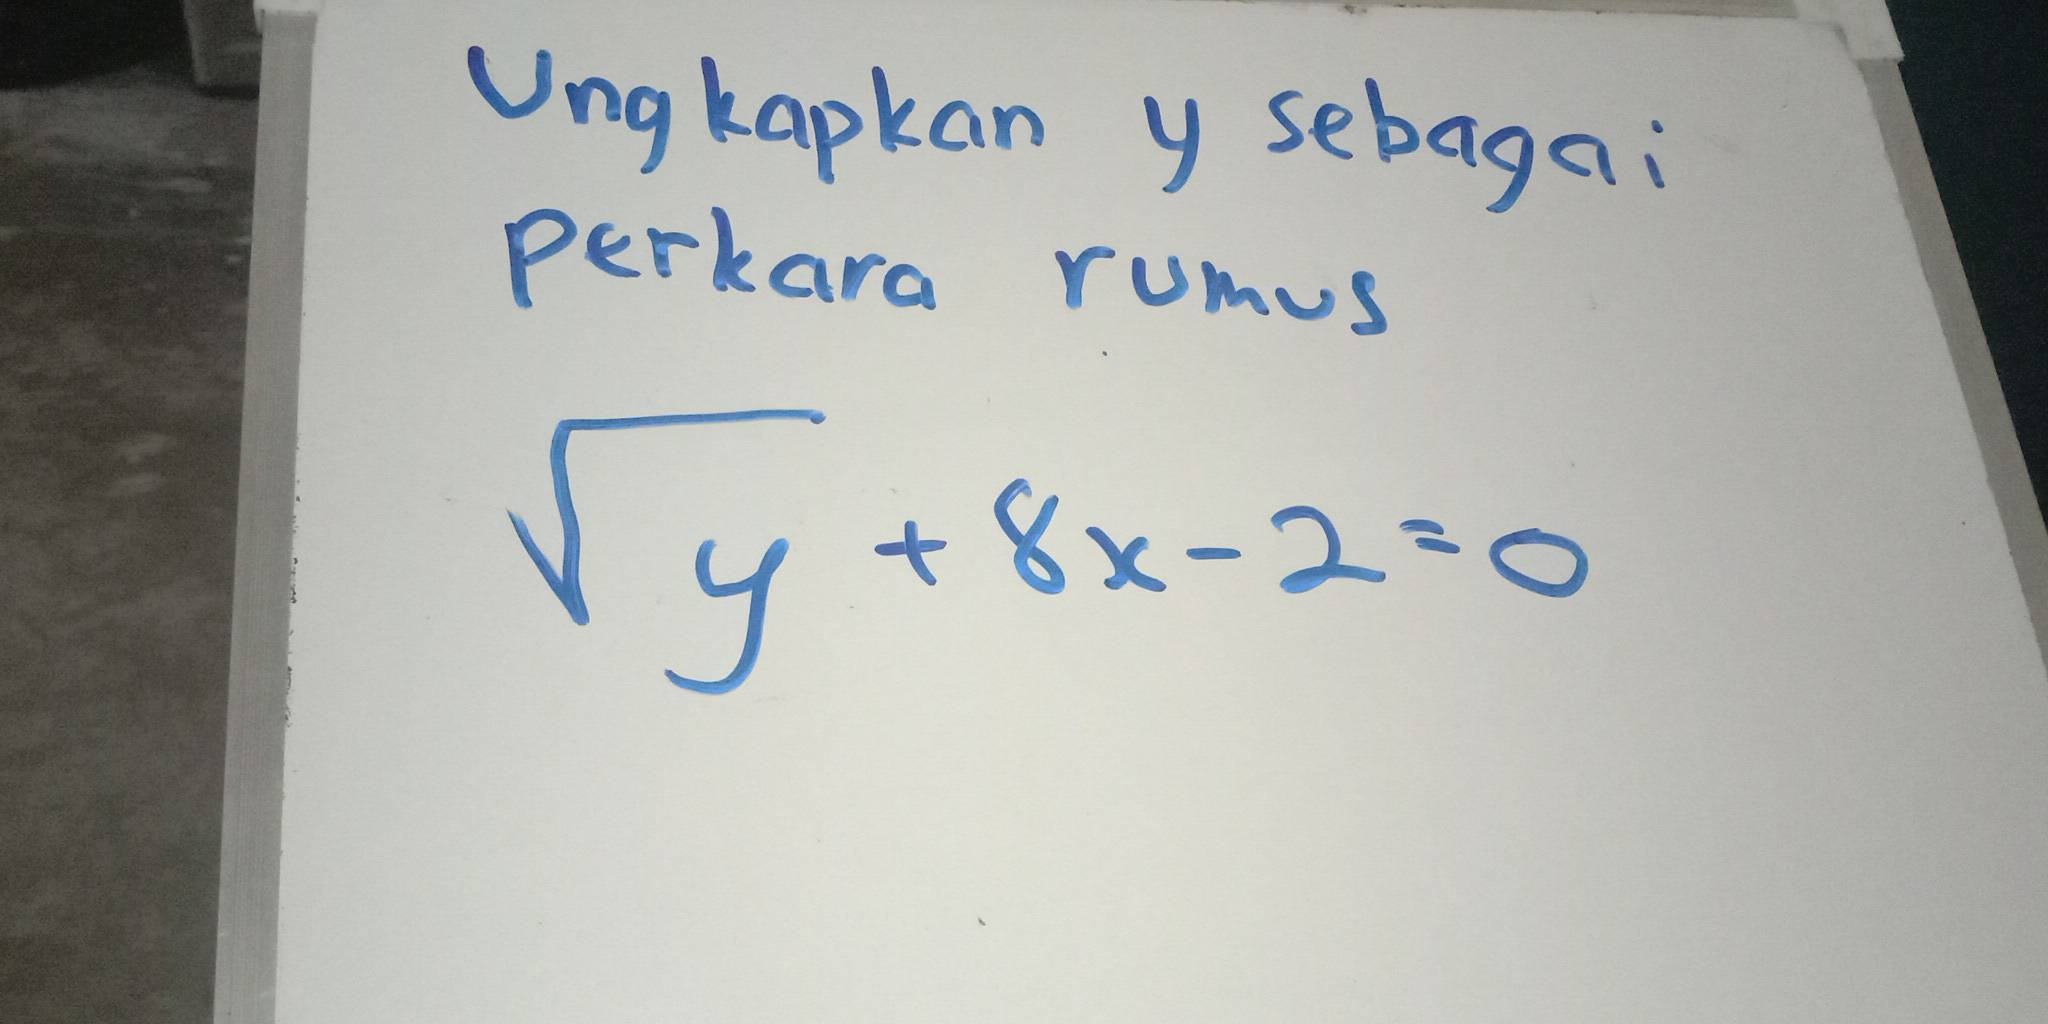 Ungkapkan y sebagai
perkara rumus
√y + 8x - 2 = 0